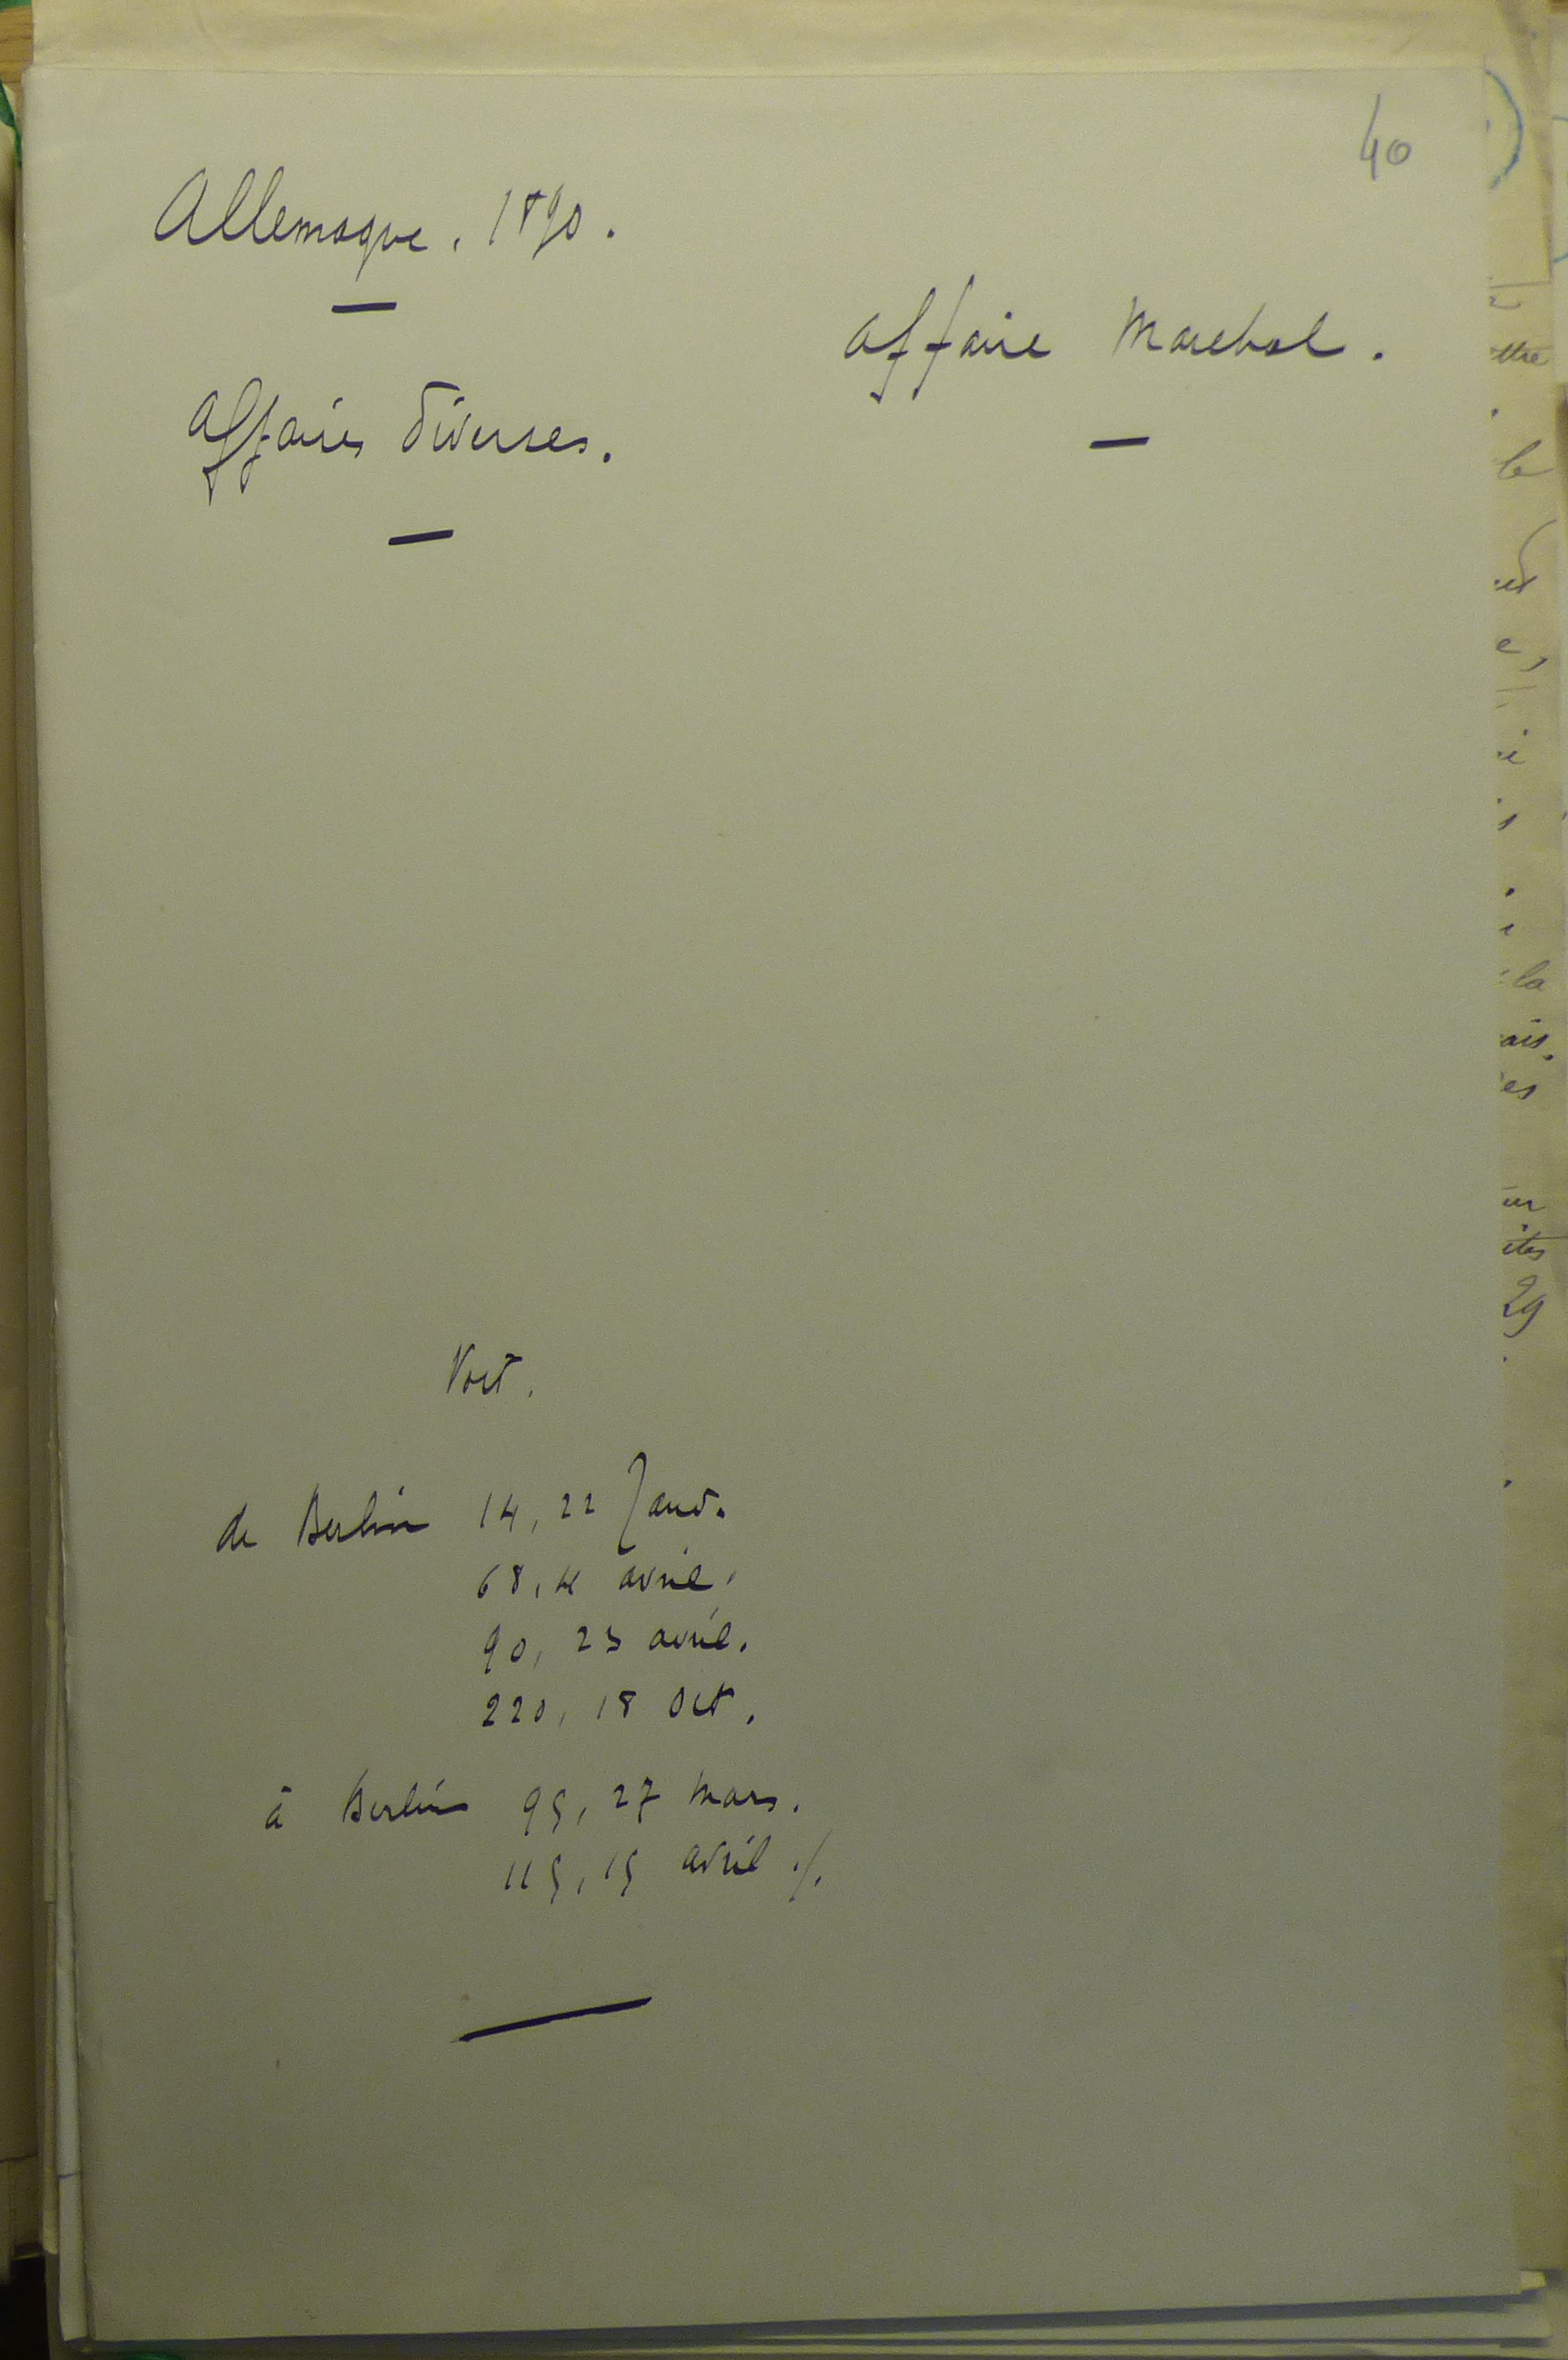 40
Allemagne. 1890.
Affaires diverses.
Affaire Marchal.
Voir.
de Berlin 14, 22 Janv.
68, 4 avril.
90, 23 avril.
220, 18 Oct.
à Berlin 95, 27 Mars.
115, 15 avril ./.
ttre
le
la
ais.
es
ur
ites
29